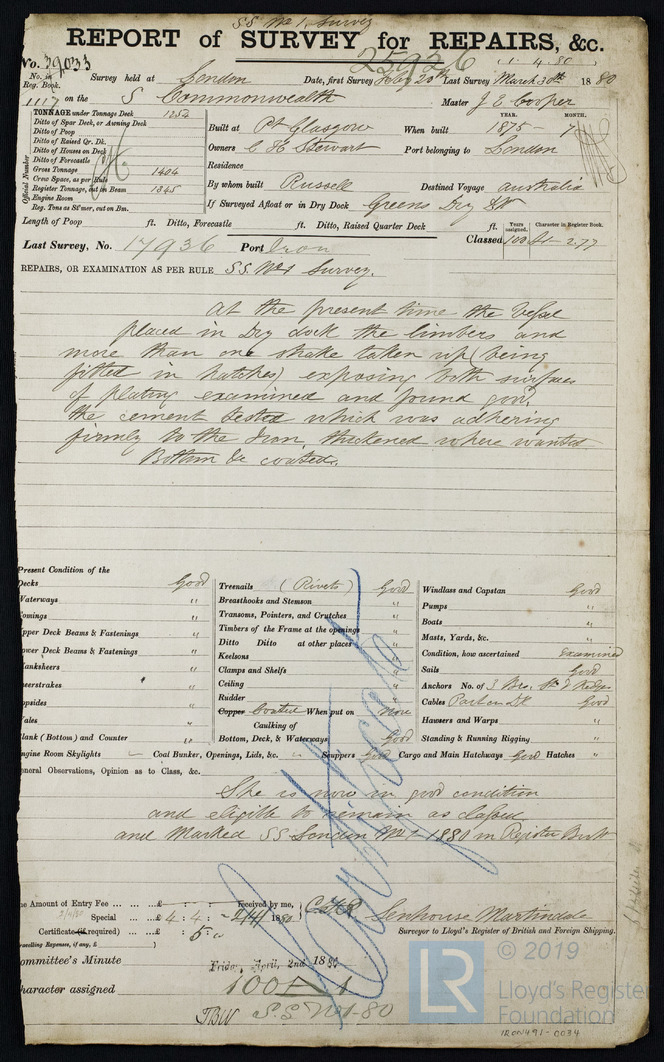 S.S. No 1. Survey
REPORT of SURVEY for REPAIRS, &c.
25926 1. 4. 80
No. 39033
No. in Reg. Book. Survey held at London Date, first Survey Feby 20th Last Survey March 30th 1880
1117 on the S Commonwealth Master J E Cooper
TONNAGE under Tonnage Deck 1252
Ditto of Spar Deck, or Awning Deck
Ditto of Poop
Ditto of Raised Qr. Dk.
Ditto of Houses on Deck
Ditto of Forecastle
Gross Tonnage 1404
Crew Space, as per Rule
Register Tonnage, cut on Beam 1345
Engine Room
Reg. Tons as St'mer, cut on Bm.
Official Number
YEAR. MONTH.
Built at Pt Glasgow When built 1875 - 7
Owners C H Stewart Port belonging to London
Residence
By whom built Russell Destined Voyage Australia
If Surveyed Afloat or in Dry Dock Greens Dry
Length of Poop ft. Ditto, Forecastle ft. Ditto, Raised Quarter Deck ft.
Years assigned. Character in Register Book.
Last Survey, No. 17936 Port Iron Classed 100 A1 - 2.77
REPAIRS, OR EXAMINATION AS PER RULE S.S. No 1 Survey.
At the present time the Vessel
placed in Dry dock the limbers and
more than one strake taken up (being
fitted in hatches) exposing both surfaces
of plating examined and found good,
the cement tested which was adhering
firmly to the Iron, thickened where wanted
Bottom &c coated.
Present Condition of the
Decks Good
Waterways "
Comings "
Upper Deck Beams & Fastenings "
Lower Deck Beams & Fastenings "
Planksheers "
Sheerstrakes "
Topsides "
Wales "
Plank (Bottom) and Counter "
Treenails (Rivets) Good
Breasthooks and Stemson "
Transoms, Pointers, and Crutches "
Timbers of the Frame at the openings "
Ditto Ditto at other places "
Keelsons "
Clamps and Shelfs "
Ceiling "
Rudder "
Copper Coated When put on now
Caulking of
Bottom, Deck, & Waterways Good
Windlass and Capstan Good
Pumps "
Boats "
Masts, Yards, &c. "
Condition, how ascertained Examined
Sails Good
Anchors No. of 3 Bro. St & Kedges
Cables Part on Dk Good
Hawsers and Warps "
Standing & Running Rigging "
Engine Room Skylights - Coal Bunker, Openings, Lids, &c. - Scuppers Good Cargo and Main Hatchways Good Hatches "
General Observations, Opinion as to Class, &c.
She is now in good condition
and eligible to remain as classed
and Marked SS London No 1 1880 in Register Book
The Amount of Entry Fee ... ... £ : : Received by me,
2/4/80 Special ... £ 4 : 4 : - 2/4/ 1880
Certificate (if required) ... : 5 : 0
Travelling Expenses, if any, £
Senhouse Martindale
Surveyor to Lloyd's Register of British and Foreign Shipping.
Committee's Minute Friday, April, 2nd 1880
Character assigned 100 A 1
TBW S.S No 1-80
LR
© 2019
Lloyd's Register
Foundation
IRON491-0034